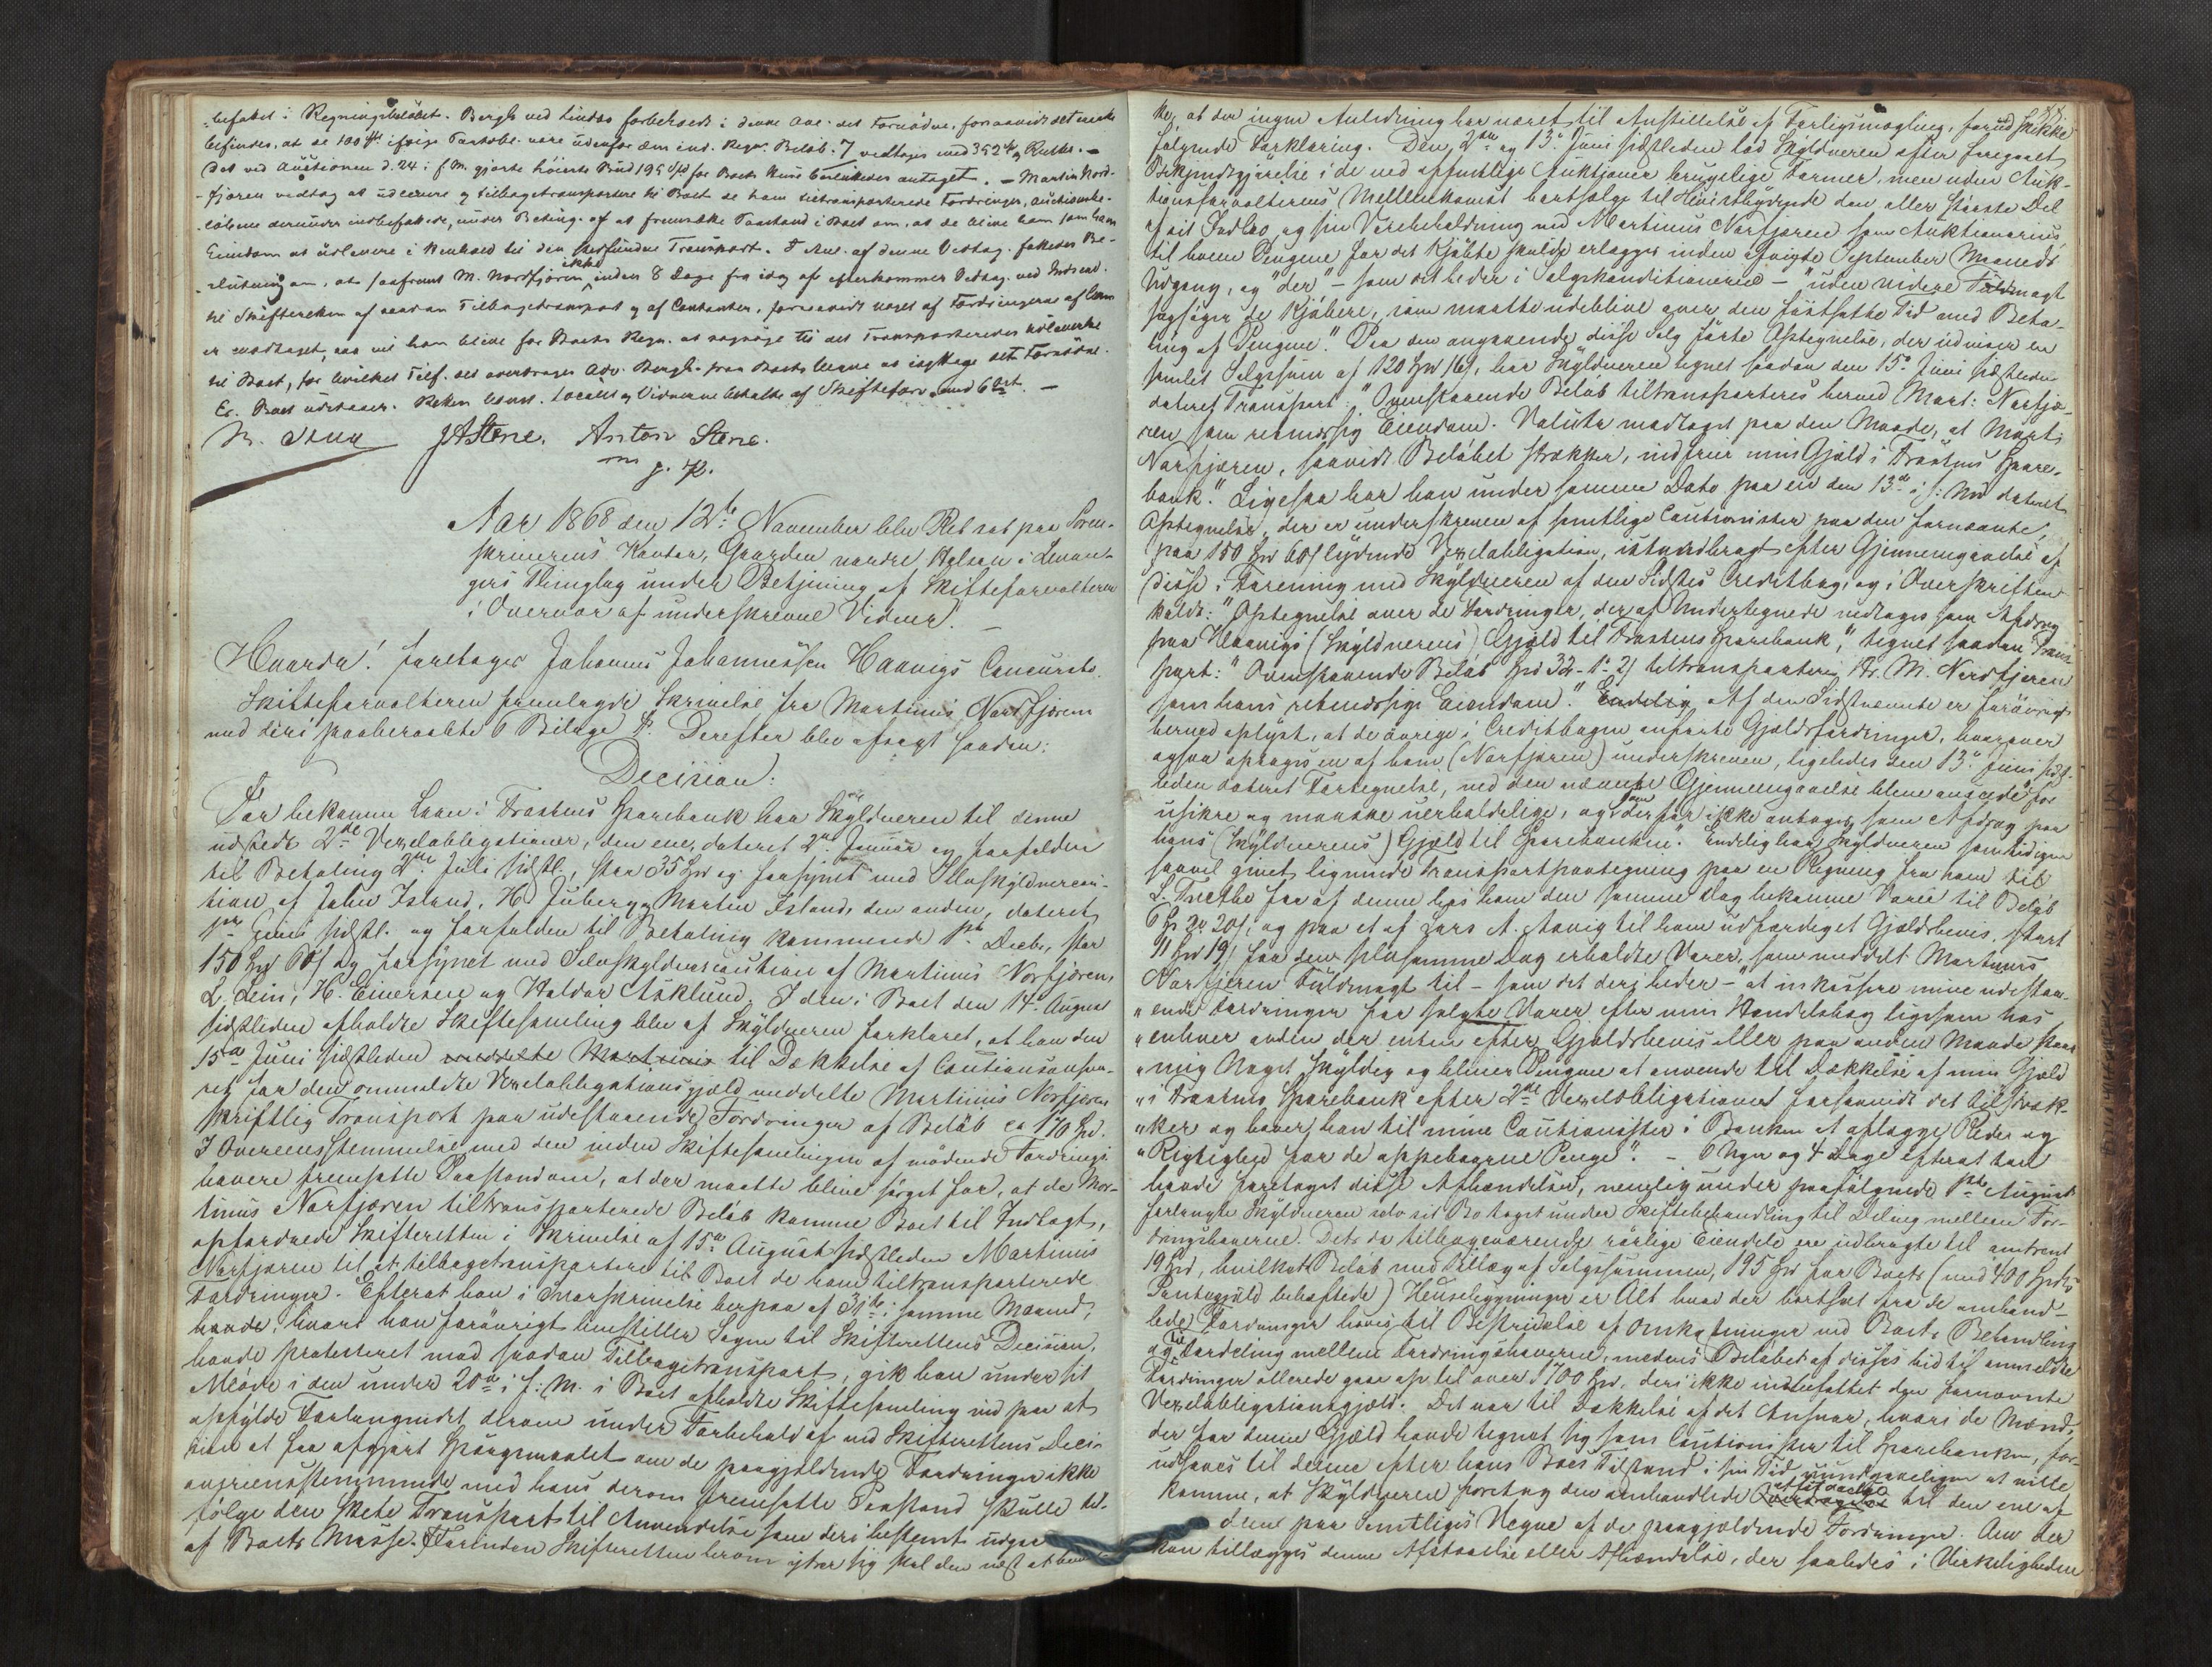 befattet i Regningsbeløbet. Bergh ved Lindbo forbeholdt i denne Anl. det Fornødne, forsaavidt det maatte
befindes, at de 100 Spd ifølge Pantobl. vare udenfor den ind. Regn. Beløb. 7 vedtages med 352 Spd og Renter. –
Det ved Auctionen d. 24 i f. M. gjorte høieste Bud 195 Spd for Boets Huus besluttedes antaget. – Martin Nord-
fjæren vedtog at udlevere og tilbagetransportere til Boet de ham tiltransporterede Fordringer, auctionsbe-
løbene derunder indbefattede, under Beting. af at fremsætte Paastand i Boet om, at de blive ham som hans
Eiendom at udlevere i Henhold til den stedfundne Transport. I Anl. af denne Vedtag. fattedes Be-
slutning om, at saafremt M. Nordfjæren ikke inden 8 Dage fra idag af efterkommer Vedtag. ved Indsend.
til Skifteretten af saadan Tilbagetransport og af Contanter, forsaavidt noget af Fordringerne af ham
er modtaget, saa vil han blive for Boets Regn. at sagsøge til det Transporteredes Udleverelse
til Boet, for hvilket Tilf. det overdrages Adv. Bergh paa Boets Vegne at iagttage det Fornødne.
Er. Boet udsættes. Retten hævet. Localet og Vidnerne betalte af Skifteforv. med 6 ort. –
M. Jenn JAStene. Anton Stene.
m. p. P.
Aar 1868 den 12te November blev Ret sat paa Soren-
skriverens Kontor, Gaarden nordre Halsan i Levan-
gers Thinglag under Betjening af Skifteforvalteren
i Overvær af underskrevne Vidner. –
Hvorda! foretages Johannes Johannessen Haavigs Concursbo.
Skifteforvalteren fremlagde Skrivelse fra Martinus Norfjæren
med deri paaberaabte 6 Bilage S. Derefter blev afsagt saadan:
Decision:
For bekomne Laan i Frostens Sparebank har Skyldneren til denne
udstedt 2de Vexelobligationer, den ene, dateret 2den Januar og forfalden
til Betaling 2den Juli sidstl., stor 35 Spd og forsynet med Selvskyldnercau-
tion af John Island, H. Juberg og Morten Island, den anden, dateret
1ste Juni sidstl. og forfalden til Betaling kommende 1ste Decbr, stor
150 Spd 60 s og forsynet med Selvskyldnercaution af Martinus Norfjæren,
L. Lein, H. Einersen og Haldor Asklund. I den i Boet den 14de August
sidstleden afholdte Skiftesamling blev af Skyldneren forklaret, at han den
15de Juni sidstleden meddelte Martinus til Dækkelse af Cautionsansva-
ret for den ommeldte Vexelobligationsgjæld meddelte Martinus Norfjæren
skriftlig Transport paa udestaaende Fordringer af Beløb ca 170 Spd.
I Overeensstemmelse med den under Skiftesamlingen af mødende Fordrings-
havere fremsatte Paastand om, at der maatte blive sørget for, at de Mar-
tinus Norfjæren tiltransporterede Beløb komme Boet til Indtægt,
opfordrede Skifteretten i Skrivelse af 15de August sidstleden Martinus
Norfjæren til at tilbagetransportere til Boet de ham tiltransporterede
Fordringer. Efterat han i Svarskrivelse herpaa af 31te i samme Maaned,
havde, hvori han forøvrigt henstiller Sagen til Skifterettens Decision,
havde protesteret mod saadan Tilbagetransport, gik han under sit
Møde i den under 20de i f: M. i Boet afholdte Skiftesamling ind paa at
opfylde Forlangendet derom under Forbehold af ved Skifterettens Deci-
sion at faa afgjort Spørgsmaalet om de paagjældende Fordringer ikke
overeensstemmende med hans derom fremsatte Paastand skulle til-
følge den skete Transport til Anvendelse som deri bestemt udgaa
af Boets Masse. Forinden Skifteretten herom ytrer sig skal den næst at bemær-
ke, at der ingen Anledning har været til Anstillelse af Forligsmægling, forudskikke
følgende Forklaring. Den 2den og 13de Juni sidstleden lod Skyldneren efter foregaaet
Bekjendtgjørelse i de ved offentlige Auktioner brugelige Former, men uden Auk-
tionsforvalterens Mellemkomst bortsælge til Høistbydende den aller største Del
af sit Indbo, og sin Varebeholdning med Martinus Norfjæren som Auktionarius,
til hvem Pengene for det Kjøbte skulde erlægges inden afvigte September Maaneds
Udgang, og "der" – som det heder i Salgskonditionerne – "uden videre Fuldmagt
sagsøger de Kjøbere, som maatte udeblive over den fastsatte Tid med Beta-
ling af Pengene." Paa den angaaende disse Salg førte Optegnelse, der udviser en
samlet Salgssum af 120 Spd 16 s, har Skyldneren tegnet saadan den 15de Juni sidstleden
dateret Transport: "Ovenstaaende Beløb tiltransporteres herved Mart: Norfjæ-
ren som retmæssig Eiendom. Valuta modtaget paa den Maade, at Mart:
Norfjæren, saavidt Beløbet strækker, indfrier min Gjæld i Frostens Spare-
bank." Ligesaa har han under samme Dato paa en den 13de i s: Md dateret
Optegnelse, der er underskreven af samtlige Cautionister paa den fornævnte,
paa 150 Spd 60 s lydende Vexelobligation, istandbragt efter Gjennemgaaelse af
disse i Forening med Skyldneren af den Sidstes Creditbog, og i Overskriften
kaldt: "Optegnelse over de Fordringer, der af Undertegnede vedtages som Afdrag
paa Haavigs (Skyldnerens) Gjæld til Frostens Sparebank," tegnet saadan Trans-
port: "Ovenstaaende Beløb Spd 32-1-2 s tiltransporteres Hr. M. Nordfjæren
som hans retmæssige Eiendom." Endelig Af den Sidstnævnte er forøvrigt
herved oplyst, at de øvrige i Creditbogen anførte Gjældsfordringer, hvorover
ogsaa optoges en af ham (Norfjæren) underskreven, ligeledes den 13de Juni sidst-
leden dateret Fortegnelse, ved den nævnte Gjennemgaaelse bleve ansete for
usikre og maaske uerholdelige, og som derfor ikke antoges som Afdrag paa
hans (Skyldnerens) Gjæld til Sparebanken". Endelig har Skyldneren samtidigen
saavel givet lignende Transportpaategning paa en Regning fra ham til
L. Tretbo for af denne hos ham den samme Dag bekomne Varer til Beløb
6 Spd 20 s, og paa et af Lars A. Aavig til ham udfærdiget Gjældsbevis, stort
11 Spd 19 s for den selvsamme Dag erholdte Varer, som meddelt Martinus
Norfjæren Fuldmagt til – som det deri heder – "at inkassere mine udestaa-
"ende Fordringer for solgte Varer efter min Handelsbog ligesom hos
"enhver anden der enten efter Gjældsbevis eller paa anden Maade staar
"mig Noget skyldig og bliver Pengene at anvende til Dækkelse af min Gjæld
"i Frostens Sparebank efter 2de Vexelobligationer forsaavidt det tilstræk-
"ker og haver han til mine Cautionister i Banken at aflægge Rede og
"Rigtighed for de oppebaarne Penge". – 6 Uger og 4 Dage efterat han
havde foretaget disse Afhændelser, nemlig under paafølgende 1ste August
forlangte Skyldneren selv sit Bo taget under Skiftebehandling til Deling mellem For-
dringshaverne. Dets da tilbageværende rørlige Eiendele ere udbragte til omtrent
19 Spd, hvilket Beløb med Tillæg af Salgssummen, 195 Spd for Boets (med 400 Spds
Pantegjæld behæftede) Huusbygninger er Alt hvad der bortset fra de omhand-
lede Fordringer haves til Bestridelse af Omkostninger ved Boets Behandling
og til Fordeling mellem Fordringshaverne, medens Beløbet af disses hidtil anmeldte
Fordringer allerede gaar op til over 1700 Spd, deri ikke indbefattet den fornævnte
Vexelobligationsgjæld. Det var til Dækkelse af det Ansvar, hvori de Mænd,
der for denne Gjæld havde tegnet sig som Cautionister til Sparebanken, for-
udsaaes til denne efter hans Boes Tilstand i sin Tid uundgaaeligen at ville
komme, at Skyldneren foretog den omhandlede Overdragelse Afstaaelse til den ene af
dem paa Samtliges Vegne af de paagjældende Fordringer. Om der
kan tillægges denne Afstaaelse eller Afhændelse, der saaledes i Virkeligheden